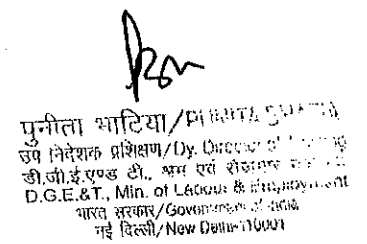 पुनीता भाटिया/PUNITA BHATIA
उप निदेशक प्रशिक्षण/Dy. Director of
डी.जी.ई.एण्ड टी., श्रम एवं रोजगार
D.G.E.&T., Min. of Labour & Employment
भारत सरकार/Government of India
नई दिल्ली/New Delhi-110001